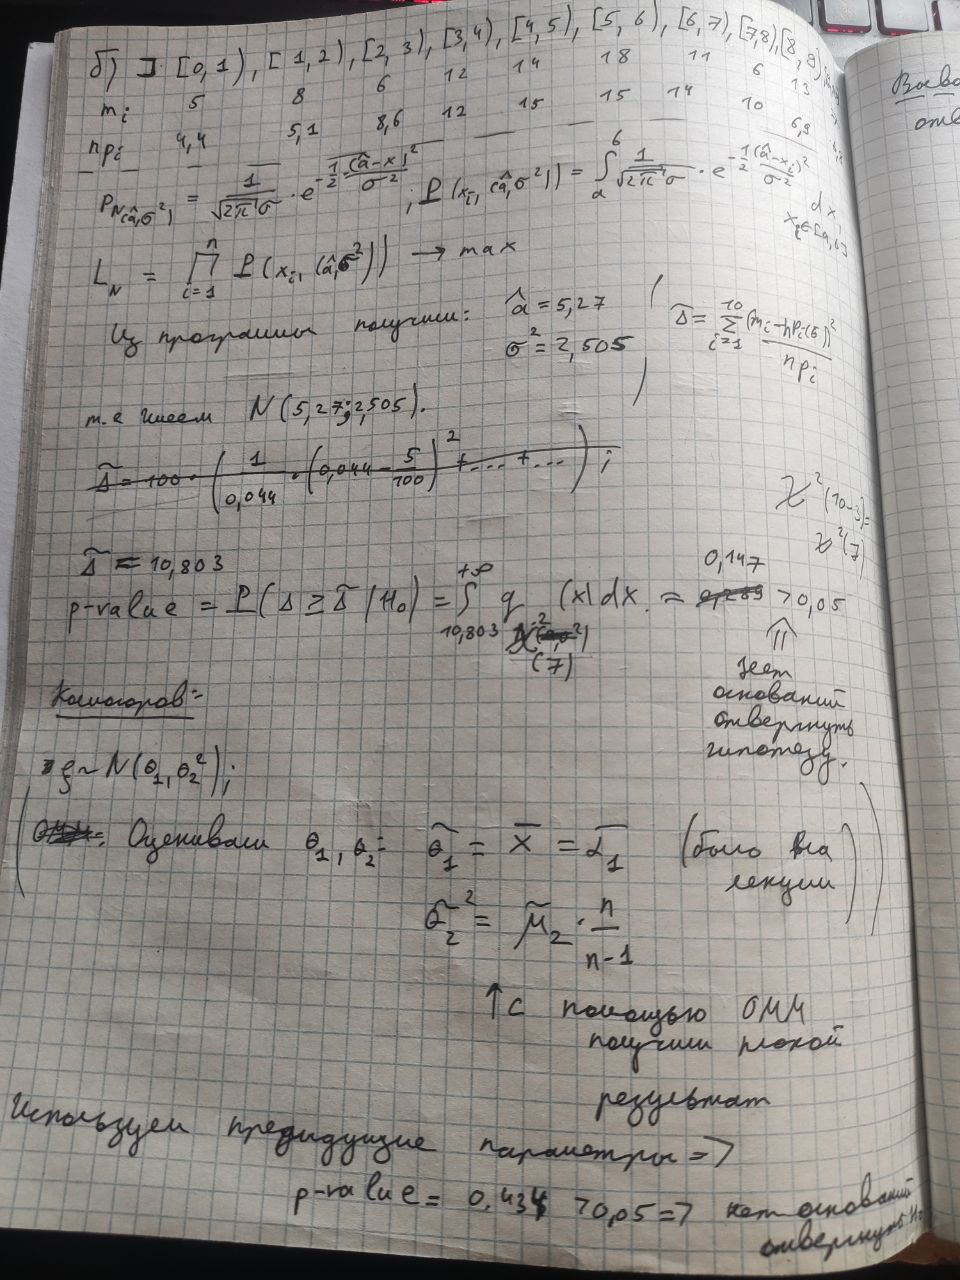 б) ℐ: [0,1), [1,2), [2,3), [3,4), [4,5), [5,6), [6,7), [7,8), [8,9),
mᵢ 5 8 6 12 14 18 11 6 13
npᵢ 4,4 5,1 8,6 12 15 15 14 10 6,9
P_{N(â,σ²)} = 1/(√(2π)σ) · e^{-1/2 (â-x)²/σ²} ; P(xᵢ, (â,σ²)) = ∫_a^б 1/(√(2π)σ) · e^{-1/2 (â-xᵢ)²/σ²} dx,
xᵢ ∈ [a,б)
L_N = ∏_{i=1}^n P(xᵢ, (â,σ²)) → max
Из программы получили: â = 5,27
σ² = 2,505
Δ̃ = Σ_{i=1}^{10} (mᵢ - npᵢ(б))²/npᵢ
т.е имеем N(5,27; 2,505).
Δ̃ = 100 · (1/0,044 · (0,044 - 5/100)² + ... + ...) ;
χ²(10-3) =
χ²(7)
Δ̃ = 10,803
p-value = P(Δ ≥ Δ̃ | H₀) = ∫_{10,803}^{+∞} q_{χ²(7)} (x) dx = 0,147 > 0,05
⇑
нет
оснований
отвергнуть
гипотезу.
Колмогоров:
ξ ~ N(θ₁, θ₂²);
ОММ: Оценивали θ₁, θ₂: θ̃₁ = x̄ = α̃₁ (было на
лекции)
θ̃₂² = μ̃₂ · n/(n-1)
↑ с помощью ОММ
получили плохой
результат
Используем предидущие параметры =>
p-value = 0,434 > 0,05 => нет оснований
отвергнуть H₀